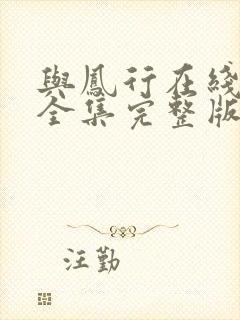 與鳳行在綫
全集完整版
汪勤